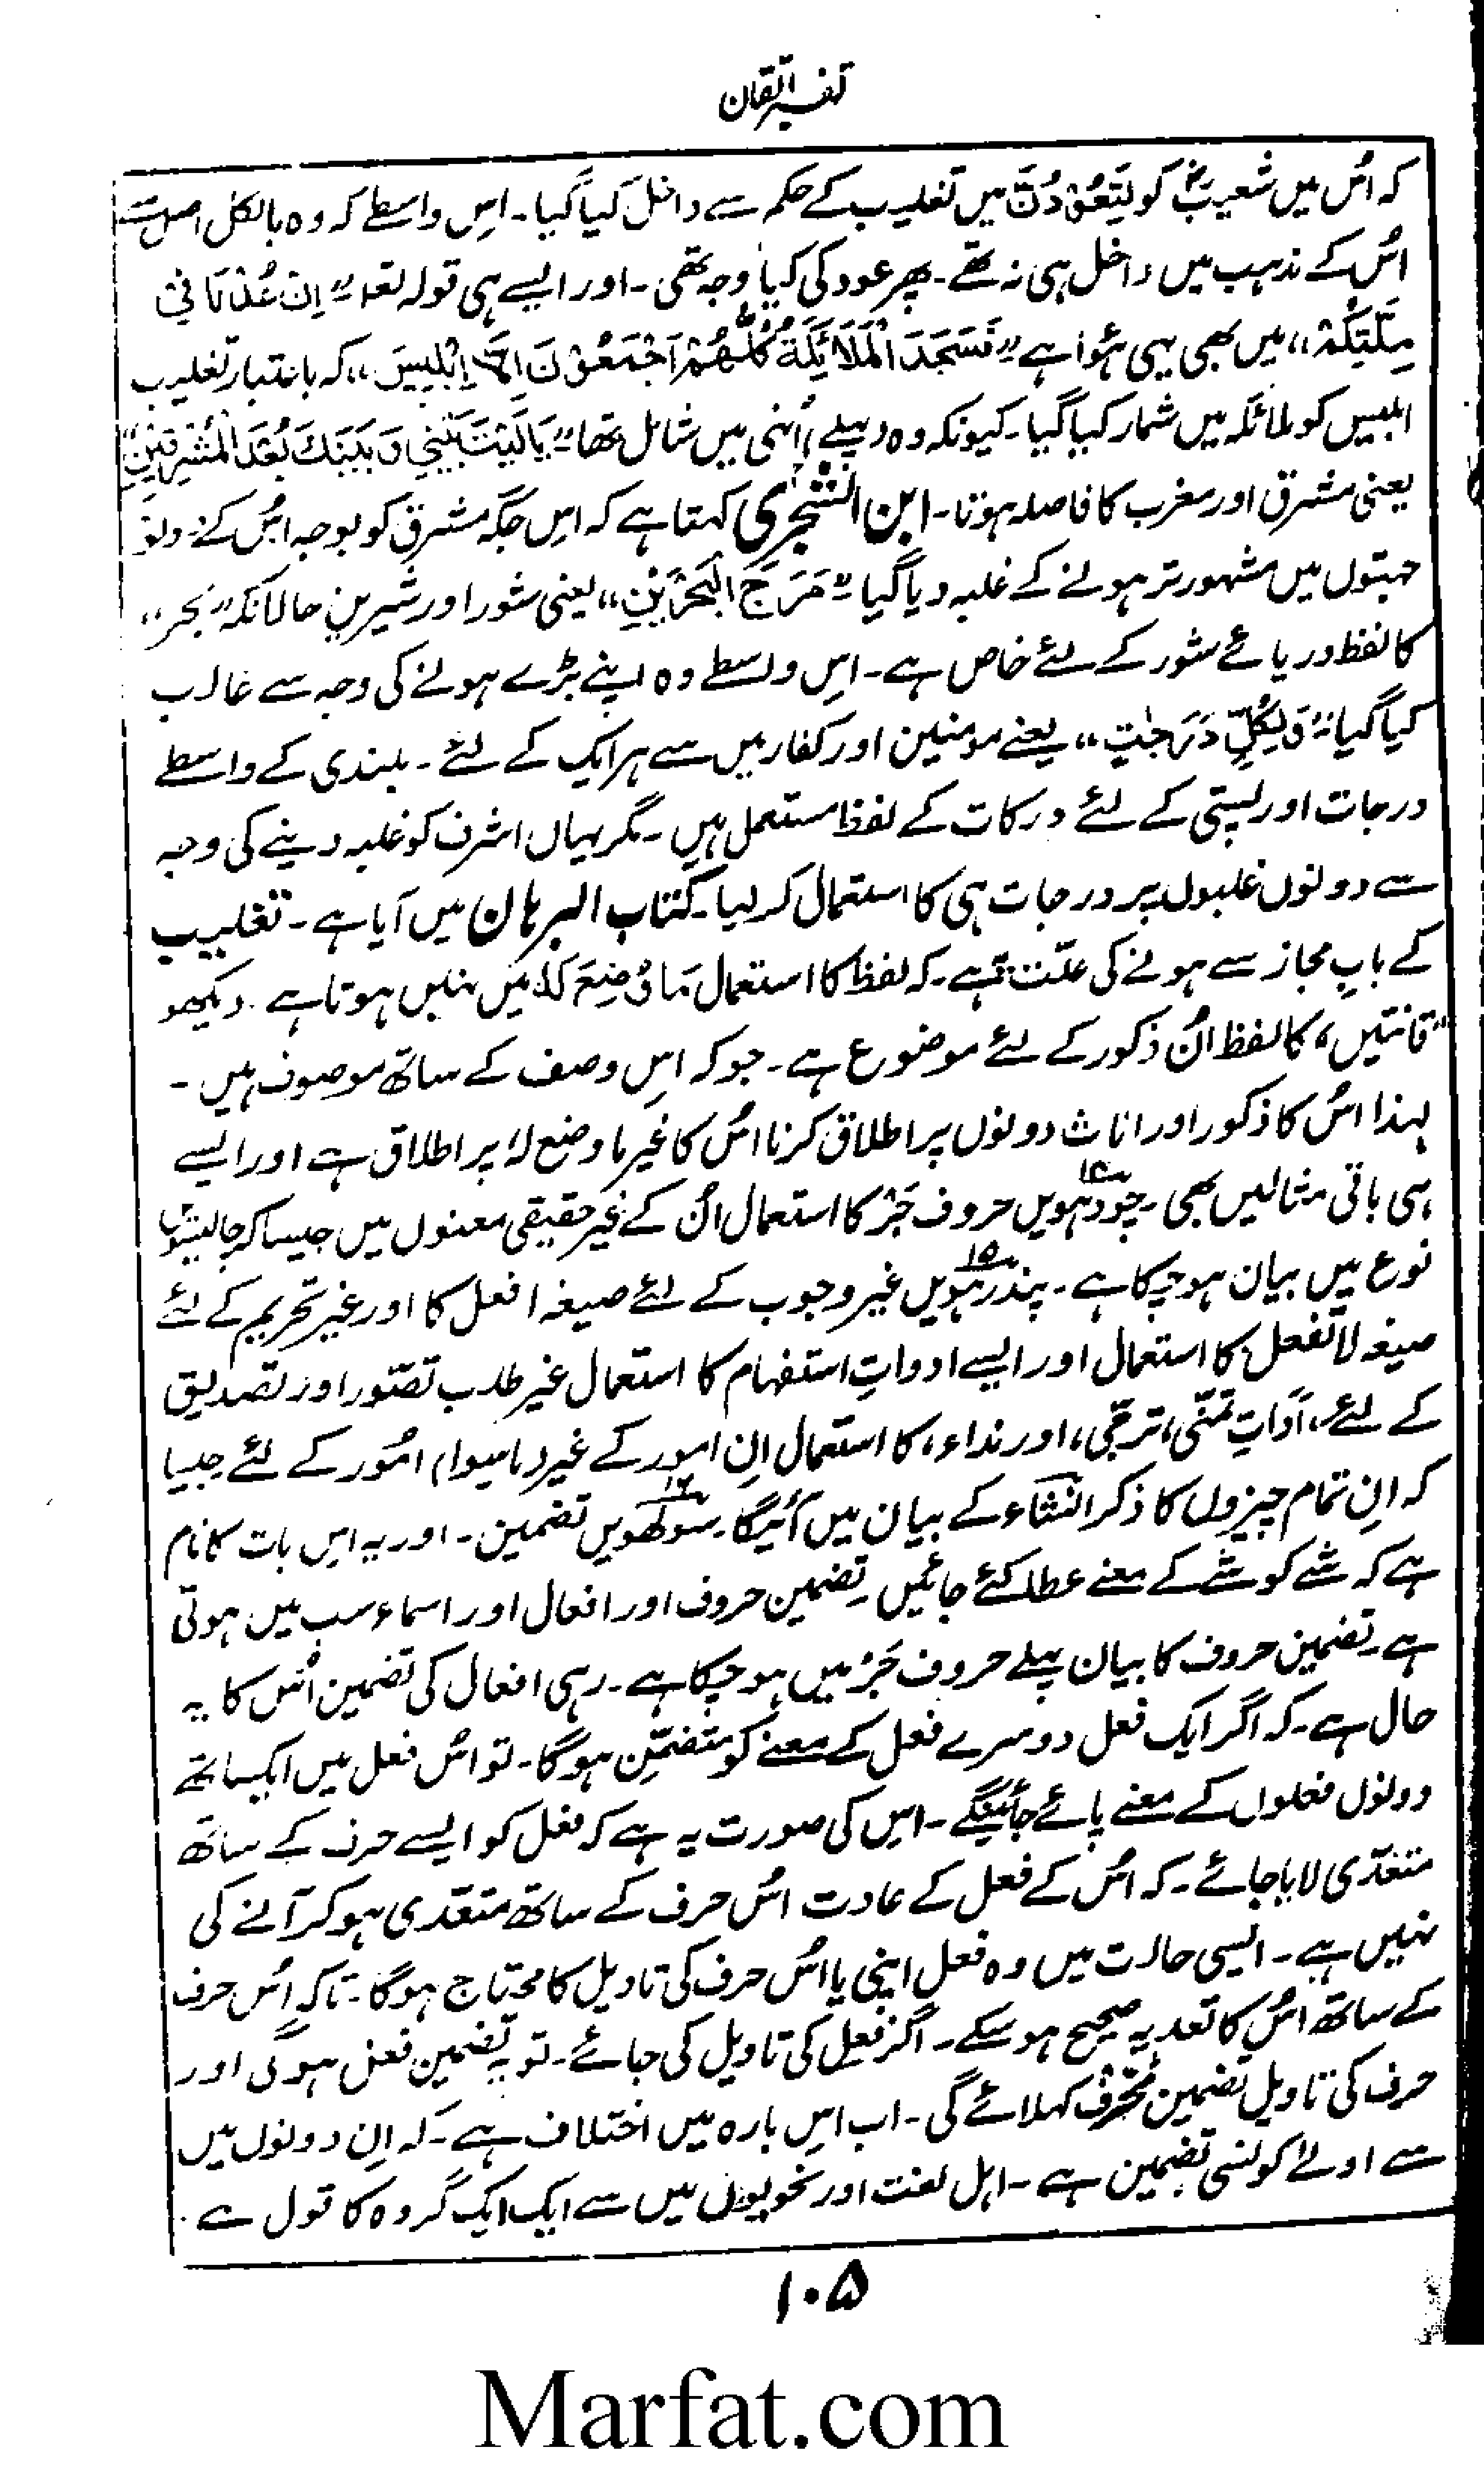 تفسیر اتقان
کہ اُس میں شعیبؑ کو لَیَعُوْدُنَّ میں تغلیب کے حکم سے داخل کیا گیا۔ اِس واسطے کہ وہ بالکل اصل سے
اُس کے مذہب میں داخل ہی نہ تھے۔ پھر عود کی کیا وجہ تھی۔ اور ایسے ہی قولہ تعہ "اِنْ عُدْنَا فِیْ
مِلَّتِکُمْ" میں بھی یہی ہؤا ہے "فَسَجَدَ الْمَلَائِکَۃُ کُلُّھُمْ اَجْمَعُوْنَ اِلَّا اِبْلِیْسَ" کہ باعتبار تغلیب
ابلیس کو ملائکہ میں شمار کیا گیا۔ کیونکہ وہ پہلے اُنہی میں شامل تھا "یَالَیْتَ بَیْنِیْ وَبَیْنَکَ بُعْدَ الْمَشْرِقَیْنِ"
یعنی مشرق اور مغرب کا فاصلہ ہوتا۔ ابن الشجری کہتا ہے کہ اِس جگہ مشرق کو بوجہ اُس کے دونو
جہتوں میں مشہور تر ہونے کے غلبہ دیا گیا "مَرَجَ الْبَحْرَیْنِ" یعنی شور اور شیریں حالانکہ "بَحر"
کا لفظ دریائے شور کے لئے خاص ہے۔ اِس واسطے وہ اپنے بڑے ہونے کی وجہ سے غالب
کیا گیا "وَلِکُلٍّ دَرَجٰتٍ" یعنے مومنین اور کفار میں سے ہر ایک کے لئے۔ بلندی کے واسطے
درجات اور پستی کے لئے درکات کے لفظ مستعمل ہیں۔ مگر یہاں اشرف کو غلبہ دینے کی وجہ
سے دونوں غلبوں پر درجات ہی کا استعمال کر لیا۔ کتاب البرہان میں آیا ہے۔ تغلیب
کے بابِ مجاز سے ہونے کی علّت یہ ہے۔ کہ لفظ کا استعمال مَا وُضِعَ لَہٗ میں نہیں ہوتا ہے۔ دیکھو
"قانتین" کا لفظ اُن ذکور کے لئے موضوع ہے۔ جو کہ اِس وصف کے ساتھ موصوف ہیں۔
لہذا اُس کا ذکور اور اناث دونوں پر اطلاق کرنا اُس کا غیر ما وضع لہٗ پر اطلاق ہے اور ایسے
ہی باقی مثالیں بھی۔ چودہویں ۱۴ حروف جَرّ کا استعمال اُن کے غیر حقیقی معنوں میں جیسا کہ چالیسویں
نوع میں بیان ہو چکا ہے۔ پندرہویں ۱۵ غیر وجوب کے لئے صیغہ افعل کا اور غیر تحریم کے لئے
صیغہ لا تفعل کا استعمال اور ایسے ادواتِ استفہام کا استعمال غیر طلب تصّور اور تصدیق
کے لئے، اَداتِ تمنّی، ترجّی، اور نداء، کا استعمال اِن امور کے غیر (ماسوا) امُور کے لئے جیسا
کہ اِن تمام چیزوں کا ذکر انشاء کے بیان میں آئیگا۔ سولھویں ۱۶ تضمین۔ اور یہ اِس بات کا نام
ہے کہ شے کو شے کے معنے عطا کئے جائیں۔ تضمین حروف اور افعال اور اسماء سب میں ہوتی
ہے۔ تضمین حروف کا بیان پہلے حروف جَرّ میں ہو چکا ہے۔ رہی افعال کی تضمین اُس کا یہ
حال ہے۔ کہ اگر ایک فعل دوسرے فعل کے معنے کو متضمّن ہوگا۔ تو اُس فعل میں ایکساتھ
دونوں فعلوں کے معنے پائے جائینگے۔ اِس کی صورت یہ ہے کہ فعل کو ایسے حرف کے ساتھ
متعدّی لایا جائے۔ کہ اُس کے فعل کے عادت اُس حرف کے ساتھ متعّدی ہو کر آنے کی
نہیں ہے۔ ایسی حالت میں وہ فعل اپنی یا اُس حرف کی تاویل کا محتاج ہوگا۔ تاکہ اُس حرف
کے ساتھ اُس کا تعدیہ صحیح ہو سکے۔ اگر فعل کی تاویل کی جائے۔ تو یہ تضمین فعل ہوگی اور
حرف کی تاویل تضمین حرف کہلائے گی۔ اب اِس بارہ میں اختلاف ہے۔ کہ اِن دونوں میں
سے اولےٰ کونسی تضمین ہے۔ اہل لغت اور نحویوں میں سے ایک ایک گروہ کا قول ہے۔
۱۰۵
Marfat.com